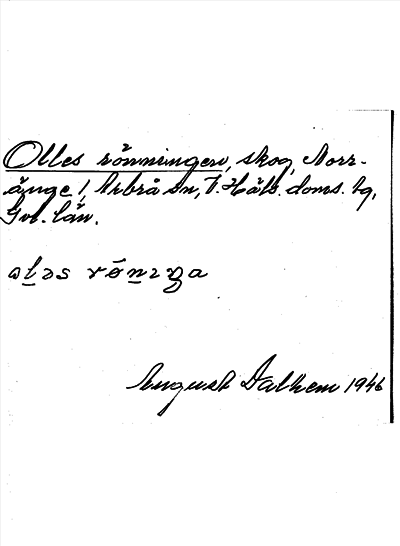 Olles rönningen, skog, Norr-
änge 1, Arbrå sn, V. Häls. doms. tg,
Gvl. län.
ɷl̲əs rón̲ɪŋa
August Dalhem 1946